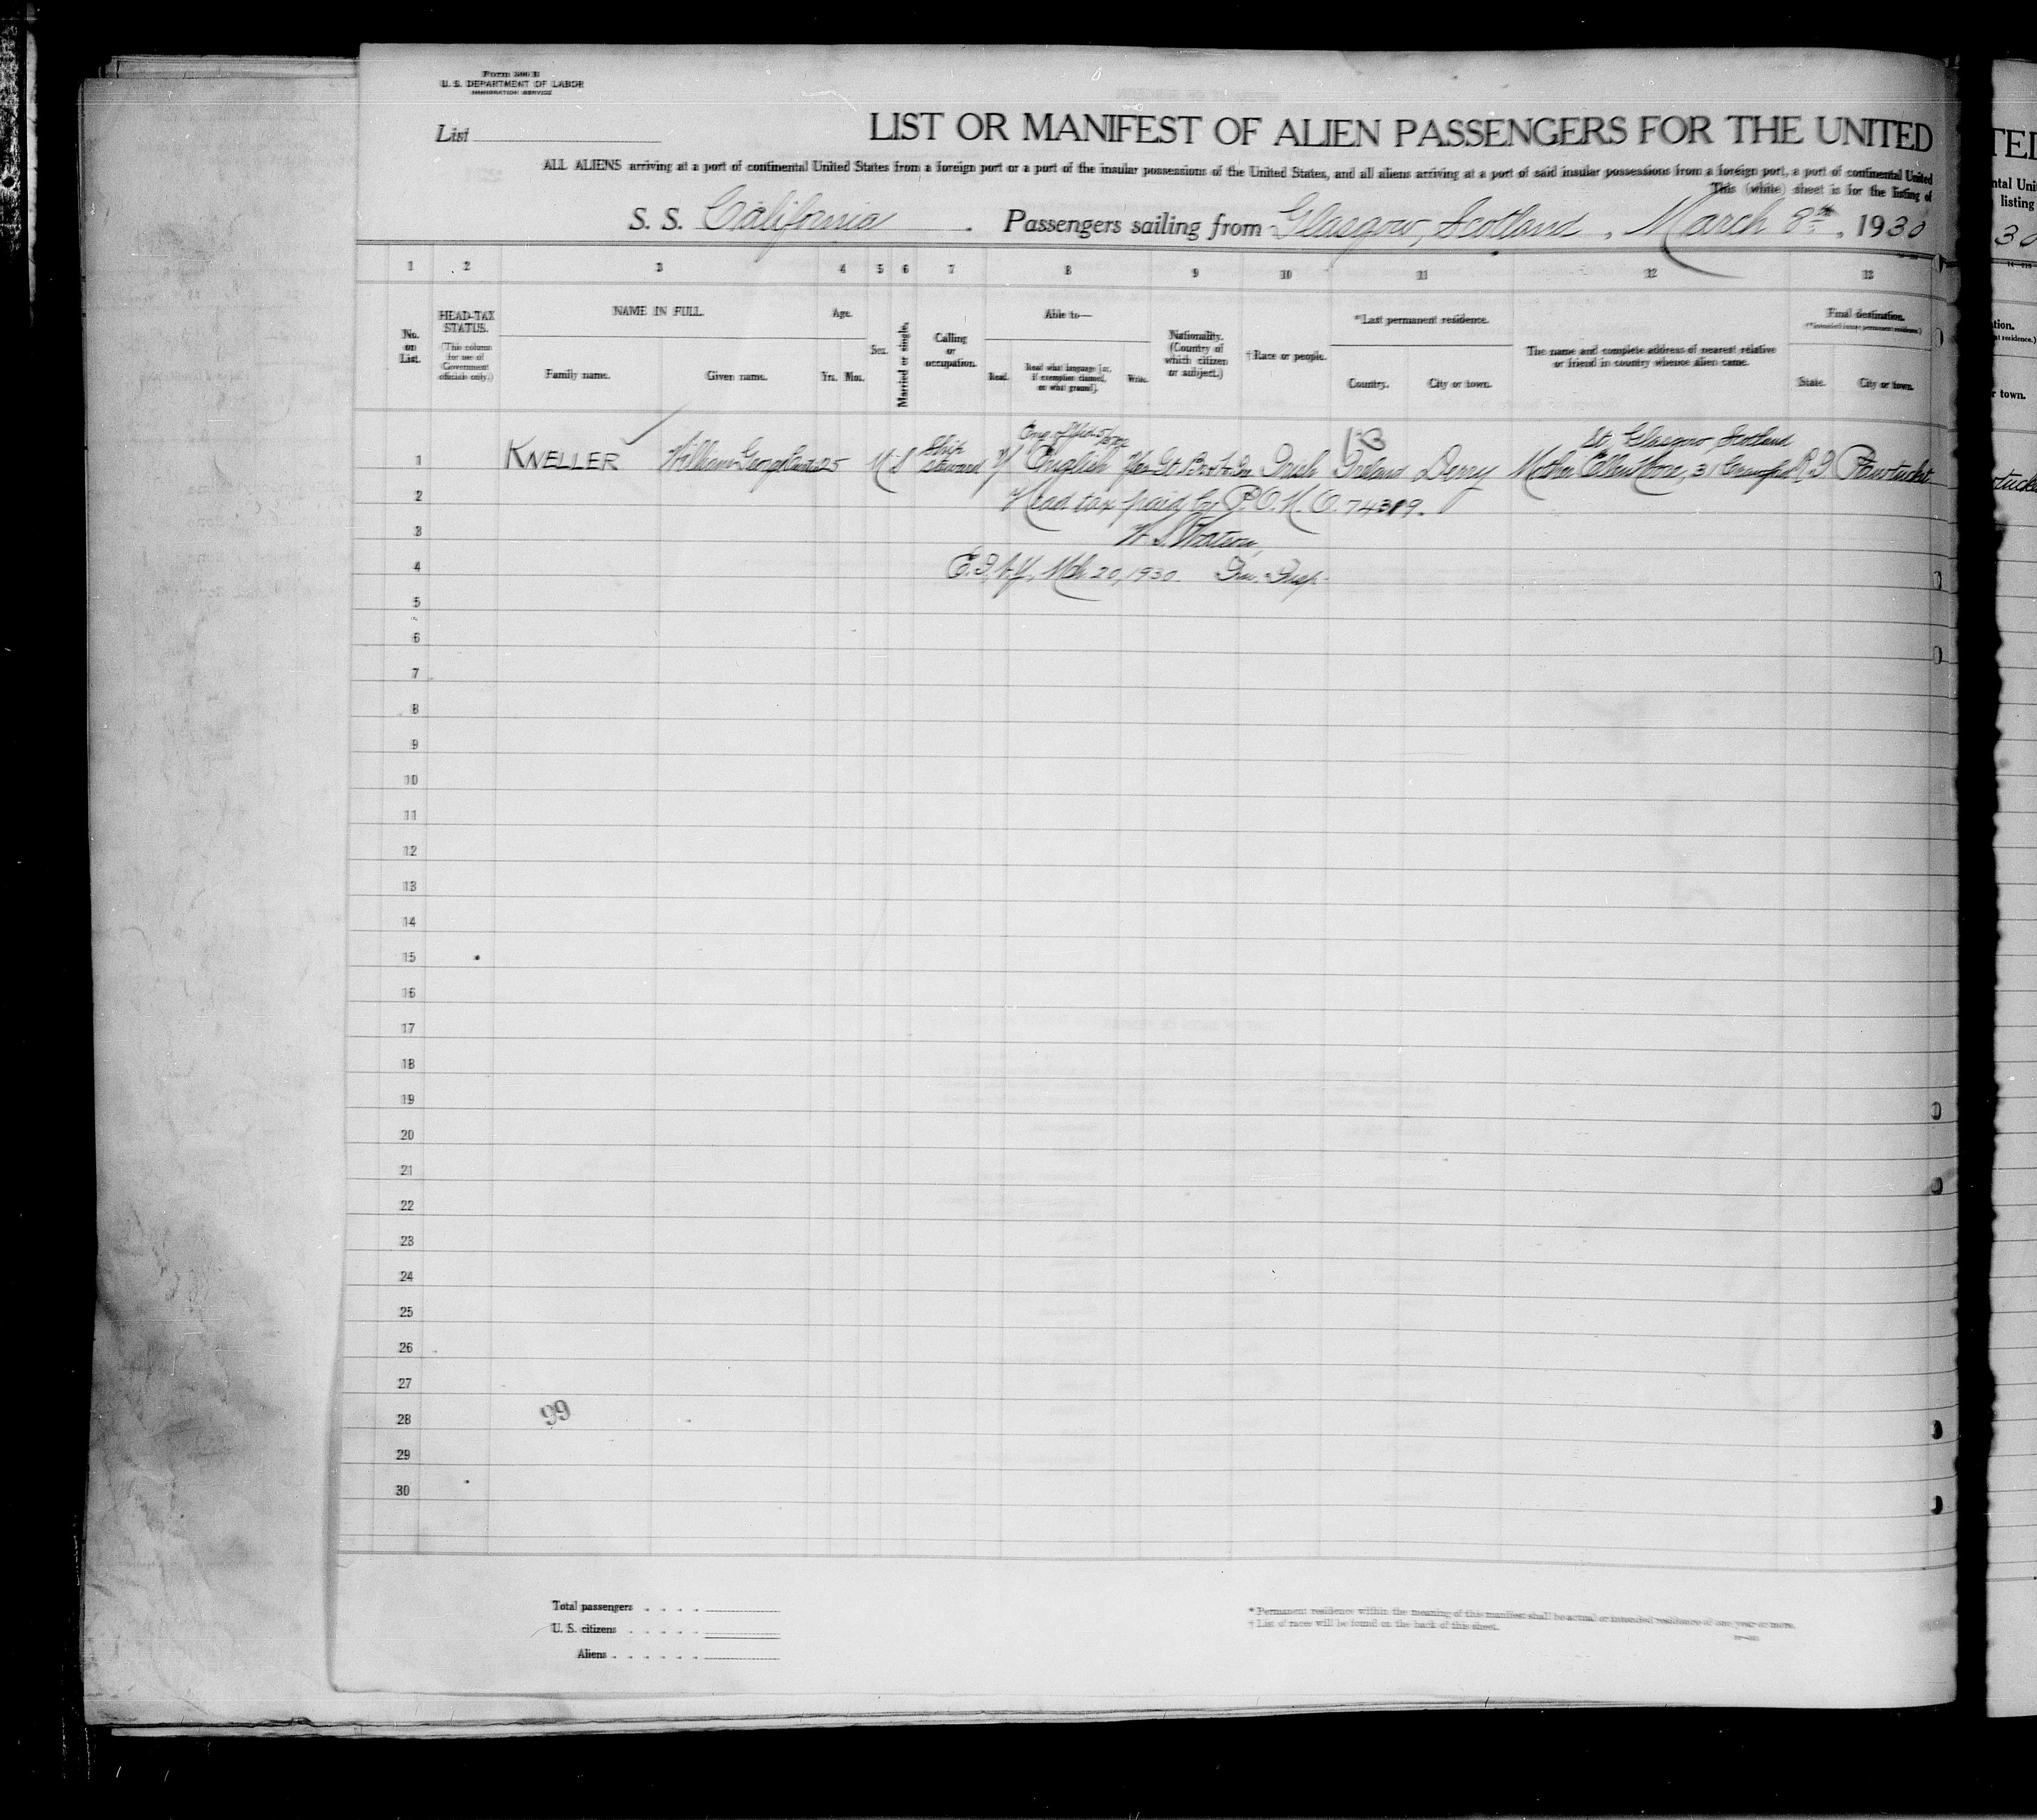 Form 500 B
U. S. DEPARTMENT OF LABOR
IMMIGRATION SERVICE
List
LIST OR MANIFEST OF ALIEN PASSENGERS FOR THE UNITED
ALL ALIENS arriving at a port of continental United States from a foreign port or a port of the insular possessions of the United States, and all aliens arriving at a port of said insular possessions from a foreign port, a port of continental United
This (white) sheet is for the listing of
S. S. California. Passengers sailing from Glasgow, Scotland, March 8th, 1930
1 2 3 4 5 6 7 8 9 10 11 12 13
No. on List.
HEAD-TAX STATUS.
(This column for use of Government officials only.)
NAME IN FULL.
Family name. Given name.
Age.
Yrs. Mos.
Sex.
Married or single.
Calling or occupation.
Able to—
Read. Read what language [or, if exemption claimed, on what ground]. Write.
Nationality. (Country of which citizen or subject.)
† Race or people.
*Last permanent residence.
Country. City or town.
The name and complete address of nearest relative or friend in country whence alien came.
Final destination.
State. City or town.
13
St, Glasgow, Scotland
1 KNELLER William George 25 M S Ship steward Y English Yes Gt Irish Ireland Derry Mother Ellen 31 R.I. Pawtucket
2 Head tax paid by P.O.M.O. 74389.
3 W. S. Watson,
4 E.I. N.Y. Mch 20, 1930. Im. Insp.
5
6
7
8
9
10
11
12
13
14
15
16
17
18
19
20
21
22
23
24
25
26
27
99
28
29
30
Total passengers
U. S. citizens
Aliens
* Permanent residence within the meaning of this manifest shall be actual or intended residence of one year or more.
† List of races will be found on the back of this sheet.